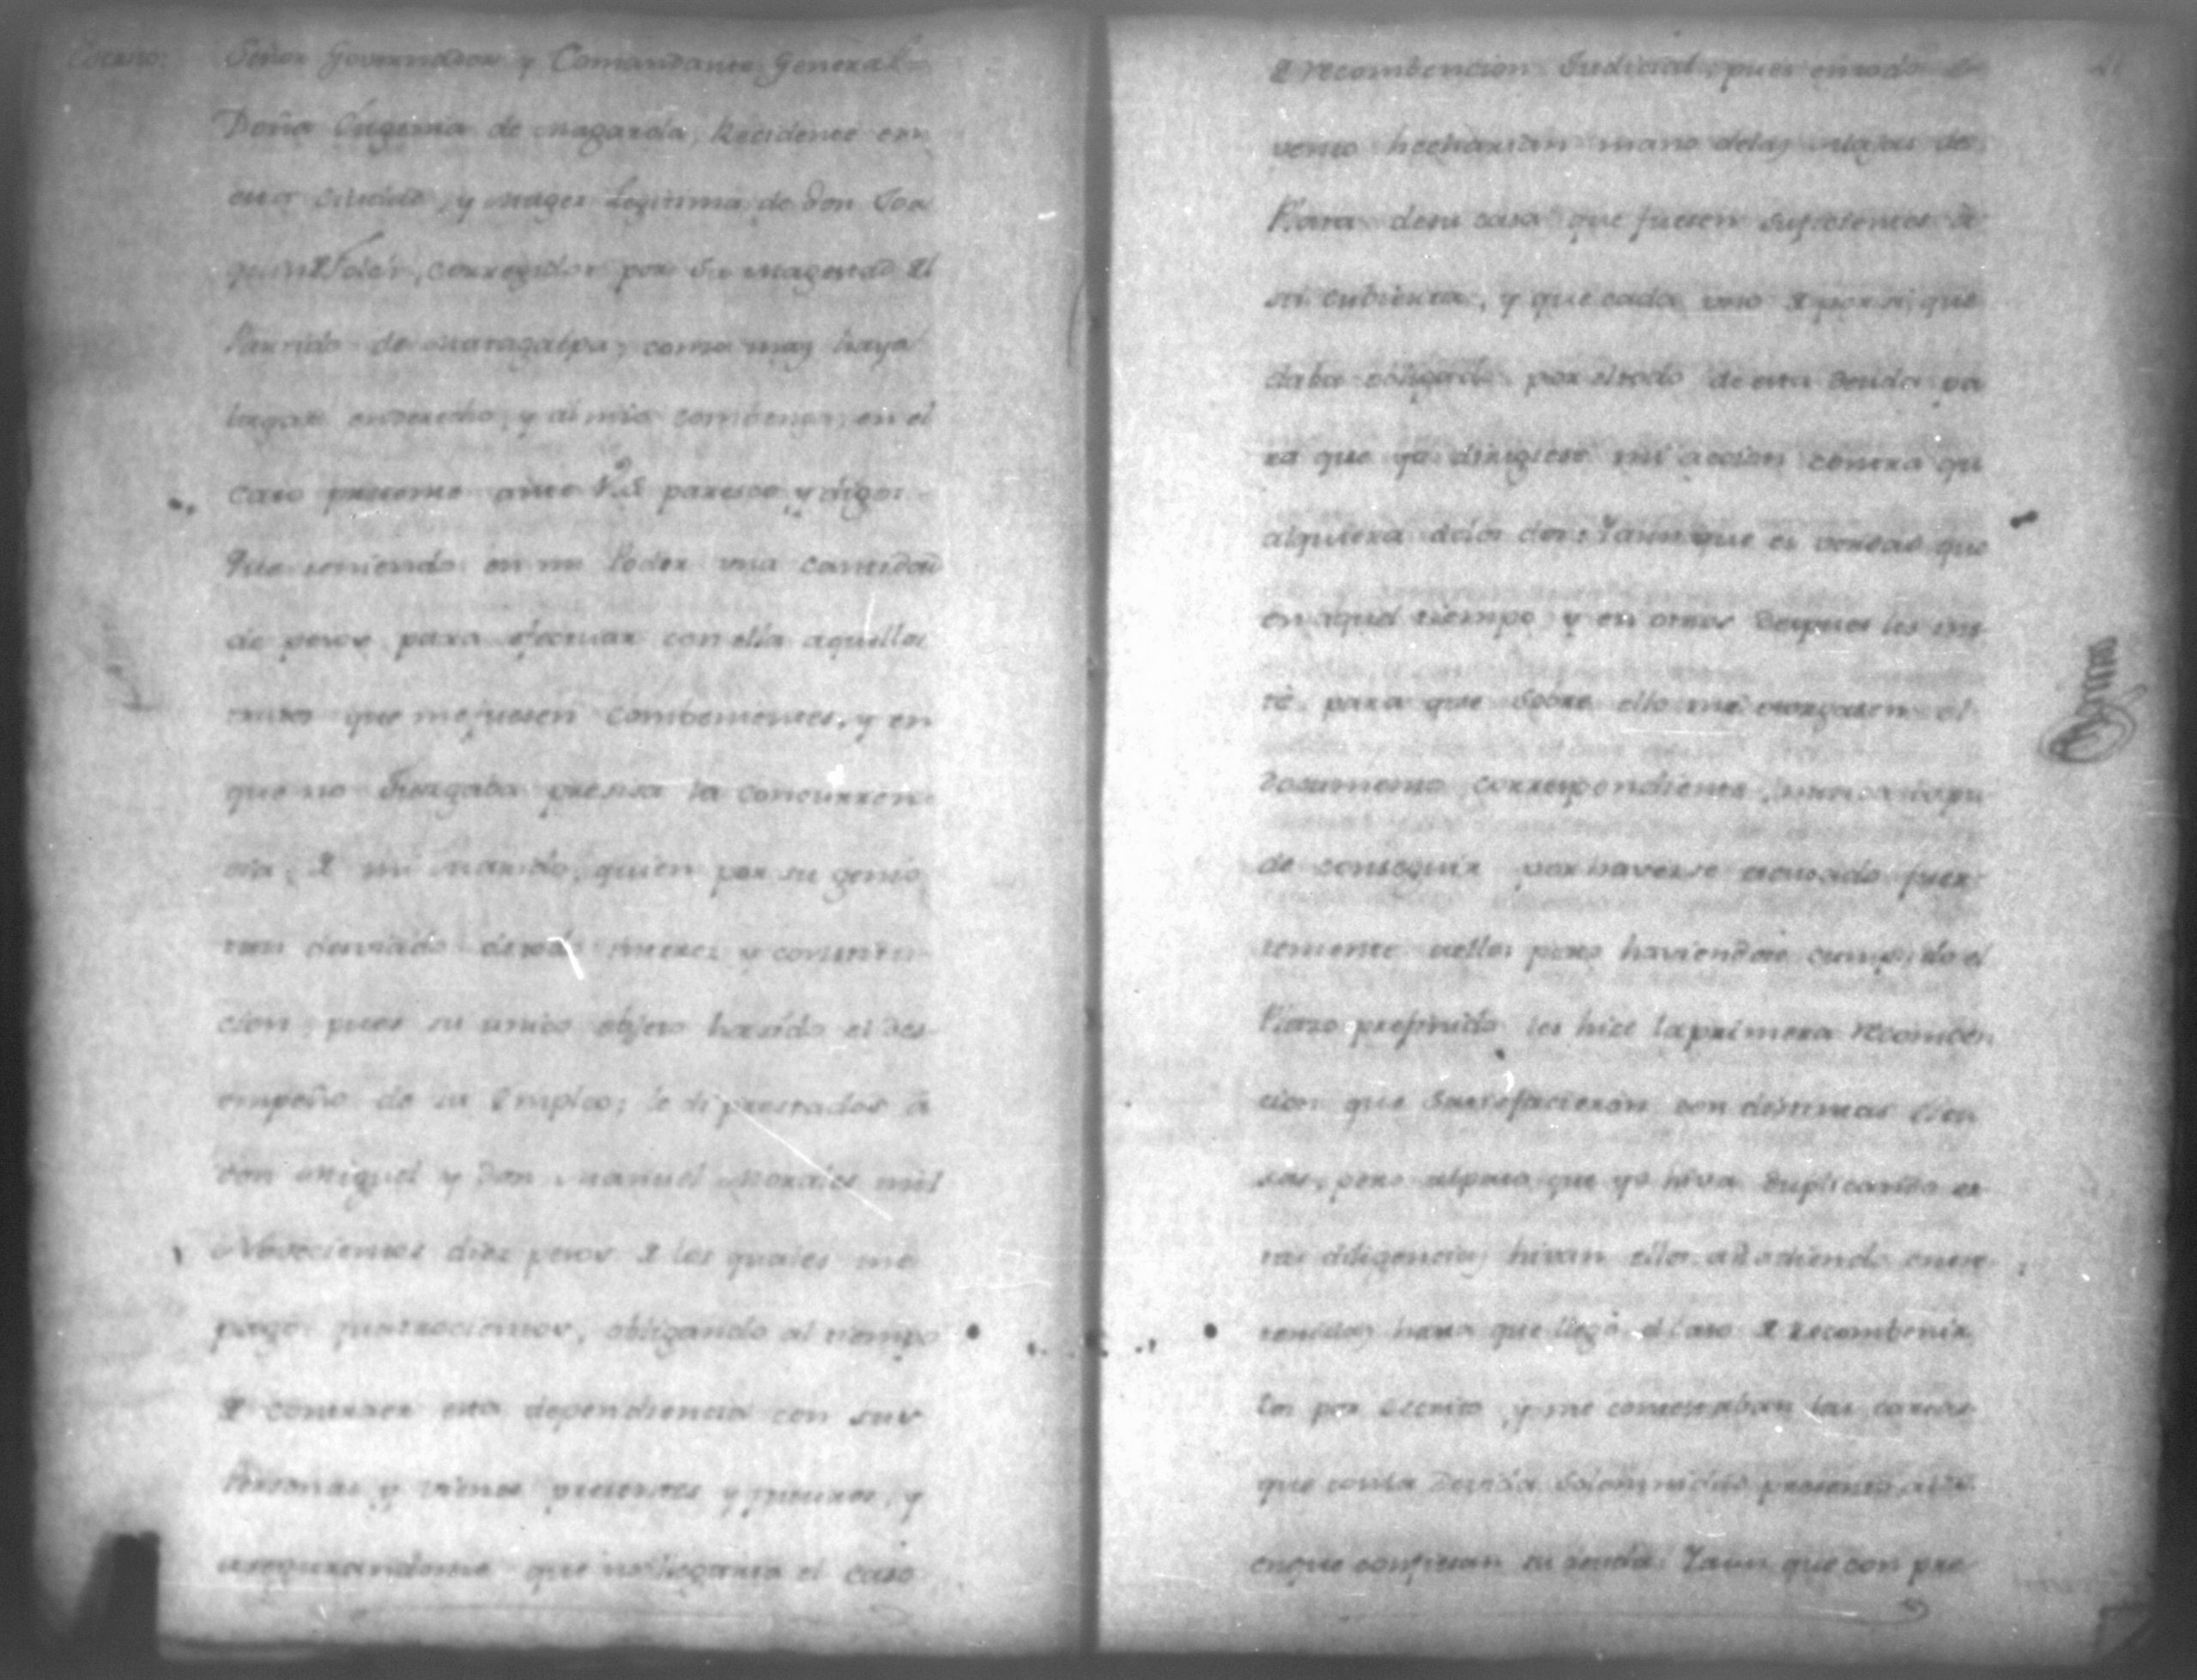 Escrito.
Señor Governador y Comandante General =
Doña Eugenia de Magarola, Recidente en
esta ciudad, y muger Legitima de Don Joa
quin corregidor por Su Magestad el
Partido de Matagalpa, como mas haya
lugar enderecho, y al mio combenga, en el
caso presente ante V.S. paresco y digo:
Que teniendo en mi Poder una cantidad
de pesos para efectuar con ella aquellos
tratos que mefuesen combenientes, y en
que no Jusgaba presisa la concurren
cia, de mi Marido, quien por su genio
tan desviado
cion, pues su unico objeto hasido el des
empeño de su Empleo; le di prestados à
Don Miguel y Don Manuel Morales mil
Novecientos diez pesos de los quales me
pagò quatrocientos, obligando al tiempo
de contraer esta dependiencia con sus
Personas y vienes presentes y futuros, y
asegurandome que no llegaria el caso
de recombencion Judicial, pues entodo e
vento hecharian mano delas alajas de
Plata desu casa que fuesen suficientes à
su cubierta, y que cada uno de por si, que
daba obligado por eltodo de esta Deuda pa
ra que yo dirigiese mi accion contra qu
alquiera delos dos: Yaunque es verdad que
en aquel tiempo y en otros Despues les ins
tè para que Sobre ello me otorgasen el
Documento correspondiente, nunca lo pu
de conseguir por haverse escusado fuer
temente aello; pero haviendose cumplido el
Plazo prefinido les hice la primera recomben
cion que Satisfacieron con distintas Escu
sas, pero alpaso que yo hiva Suplicando es
tas diligencias hivan ellos añadiendo entre
tenidas hasta que llegò el caso de Recombenir
los por Escrito, y me contestaban las cartas
que conla Devida Solemnidad presento,
enque confiesan su deuda. Yaun que con pre